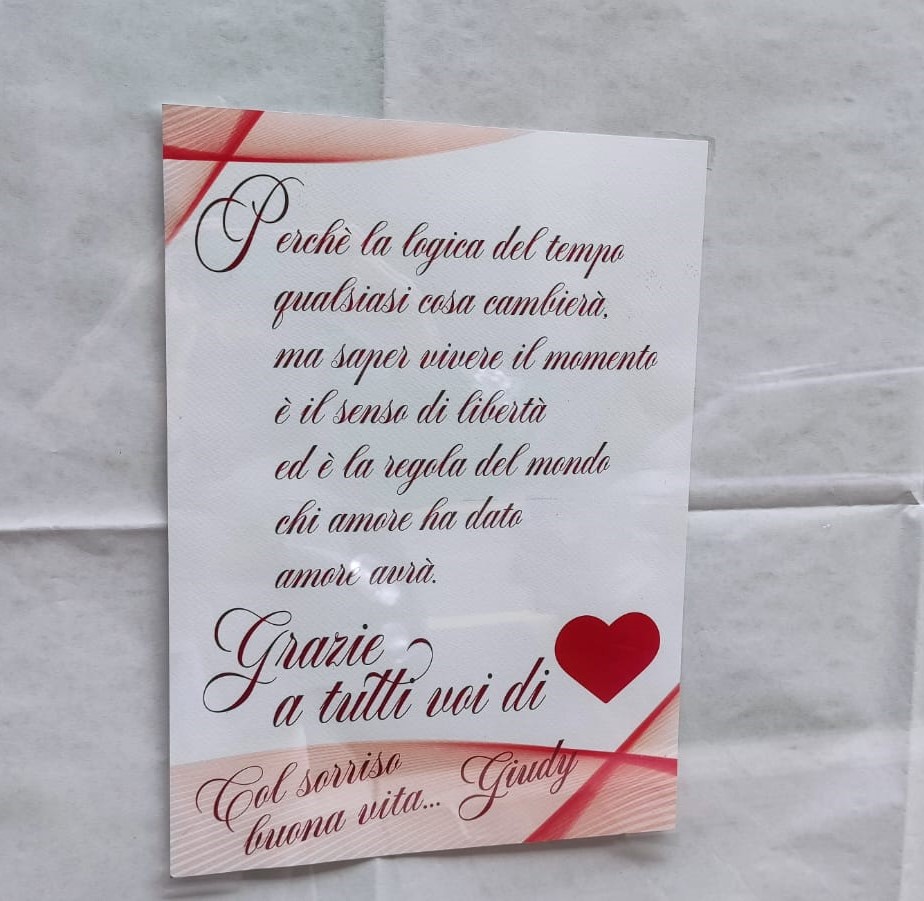 Perchè la logica del tempo
qualsiasi cosa cambierà,
ma saper vivere il momento
è il senso di libertà
ed è la regola del mondo
chi amore ha dato
amore avrà.
Grazie
a tutti voi di
Col sorriso
buona vita... Giudy